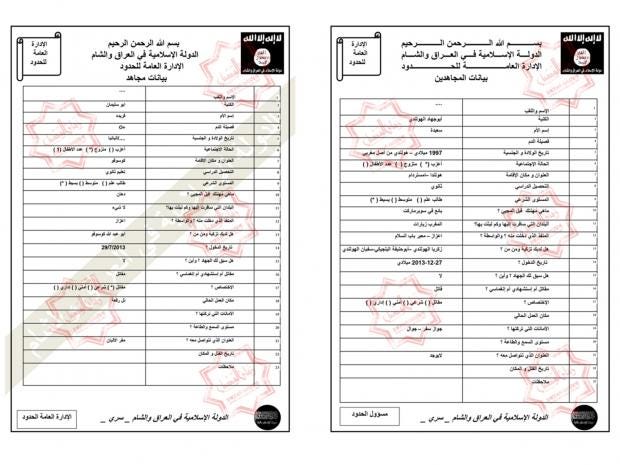 الإدارة
العامة
للحدود
بسم الله الرحمن الرحيم
الدولة الإسلامية في العراق والشام
الإدارة العامة للحدود
بيانات مجاهد
1 الإسم واللقب ....
2 الكنية ابو سليمان
3 إسم الأم فريده
4 فصيلة الدم O+
5 تاريخ الولادة و الجنسية
6 الحالة الإجتماعية أعزب ( ) متزوج (*) عدد الأطفال (1)
7 العنوان و مكان الإقامة كوسوفو
8 التحصيل الدراسي تعليم ثانوي
9 المستوى الشرعي طالب علم ( ) متوسط ( ) بسيط (*)
10 ماهي مهنتك قبل المجيئ ؟ دهان
11 البلدان التي سافرت إليها وكم لبثت بها؟ لا شيء
12 المنفذ الذي دخلت منه ؟ والواسطة ؟ اعزاز
13 هل لديك تزكية ومن من ؟ ابو عبد الله كوسوفو
14 تاريخ الدخول ؟ 29/7/2013
15 هل سبق لك الجهاد ؟ وأين ؟ لا
16 مقاتل أم إستشهادي أم إنغماسي ؟ مقاتل
17 الإختصاص ؟ مقاتل (*) شرعي ( ) أمني ( ) إداري ( )
18 مكان العمل الحالي
19 الأمانات التي تركتها ؟
20 مستوى السمع والطاعة ؟
21 العنوان الذي نتواصل معه ؟
22 تاريخ القتل و المكان
23 ملاحظات
الإدارة العامة الحدود
الدولة الإسلامية في العراق والشام _ سري _
الإدارة
العامة
للحدود
بسم الله الرحمن الرحيم
الدولة الإسلامية في العراق والشام
الإدارة العامة للحدود
بيانات المجاهدين
1 الإسم واللقب ....
2 الكنية ابوجهاد الهولندي
3 إسم الأم سعيدة
4 فصيلة الدم
5 تاريخ الولادة و الجنسية 1997 ميلادي – هولندي من أصل مغربي
6 الحالة الإجتماعية أعزب (*) متزوج ( ) عدد الأطفال ( )
7 العنوان و مكان الإقامة هولندا – امستردام
8 التحصيل الدراسي ثانوي
9 المستوى الشرعي طالب علم ( ) متوسط ( ) بسيط (*)
10 ماهي مهنتك قبل المجيئ ؟ بائع في سوبرماركت
11 البلدان التي سافرت إليها وكم لبثت بها؟ المغرب زيارات
12 المنفذ الذي دخلت منه ؟ والواسطة ؟ اعزاز – معبر باب السلام
13 هل لديك تزكية ومن من ؟
14 تاريخ الدخول ؟ 27-12-2013 ميلادي
15 هل سبق لك الجهاد ؟ وأين ؟ لا
16 مقاتل أم إستشهادي أم إنغماسي ؟
17 الإختصاص ؟
18 مكان العمل الحالي
19 الأمانات التي تركتها ؟ جواز سفر – جوال
20 مستوى السمع والطاعة ؟
21 العنوان الذي نتواصل معه ؟ لايوجد
22 تاريخ القتل و المكان
ملاحظات
مسؤول الحدود
الدولة الإسلامية في العراق والشام _ سري _